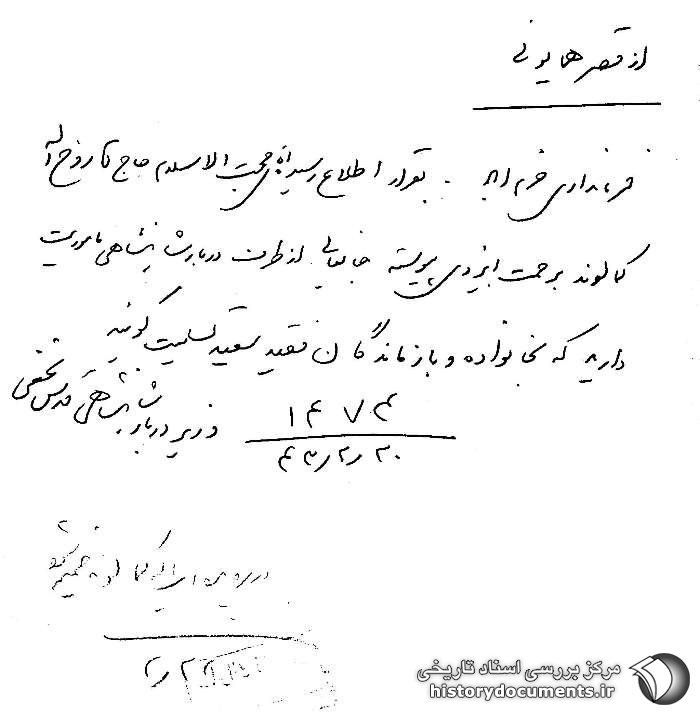 از قصر همایونی
فرمانداری خرم آباد . بقرار اطلاع رسیده آقای حجت الاسلام حاج آقا روح اله
کمالوند برحمت ایزدی پیوسته جنابعالی از طرف دربار شاهنشاهی ماموریت
دارید که بخانواده و بازماندگان فقید سعید تسلیت گوئید
وزیر دربار شاهنشاهی قدس نخعی
۱۴۷۴
۴۳٫۲٫۲۰
در پرونده
مرکز بررسی اسناد تاریخی
historydocuments.ir